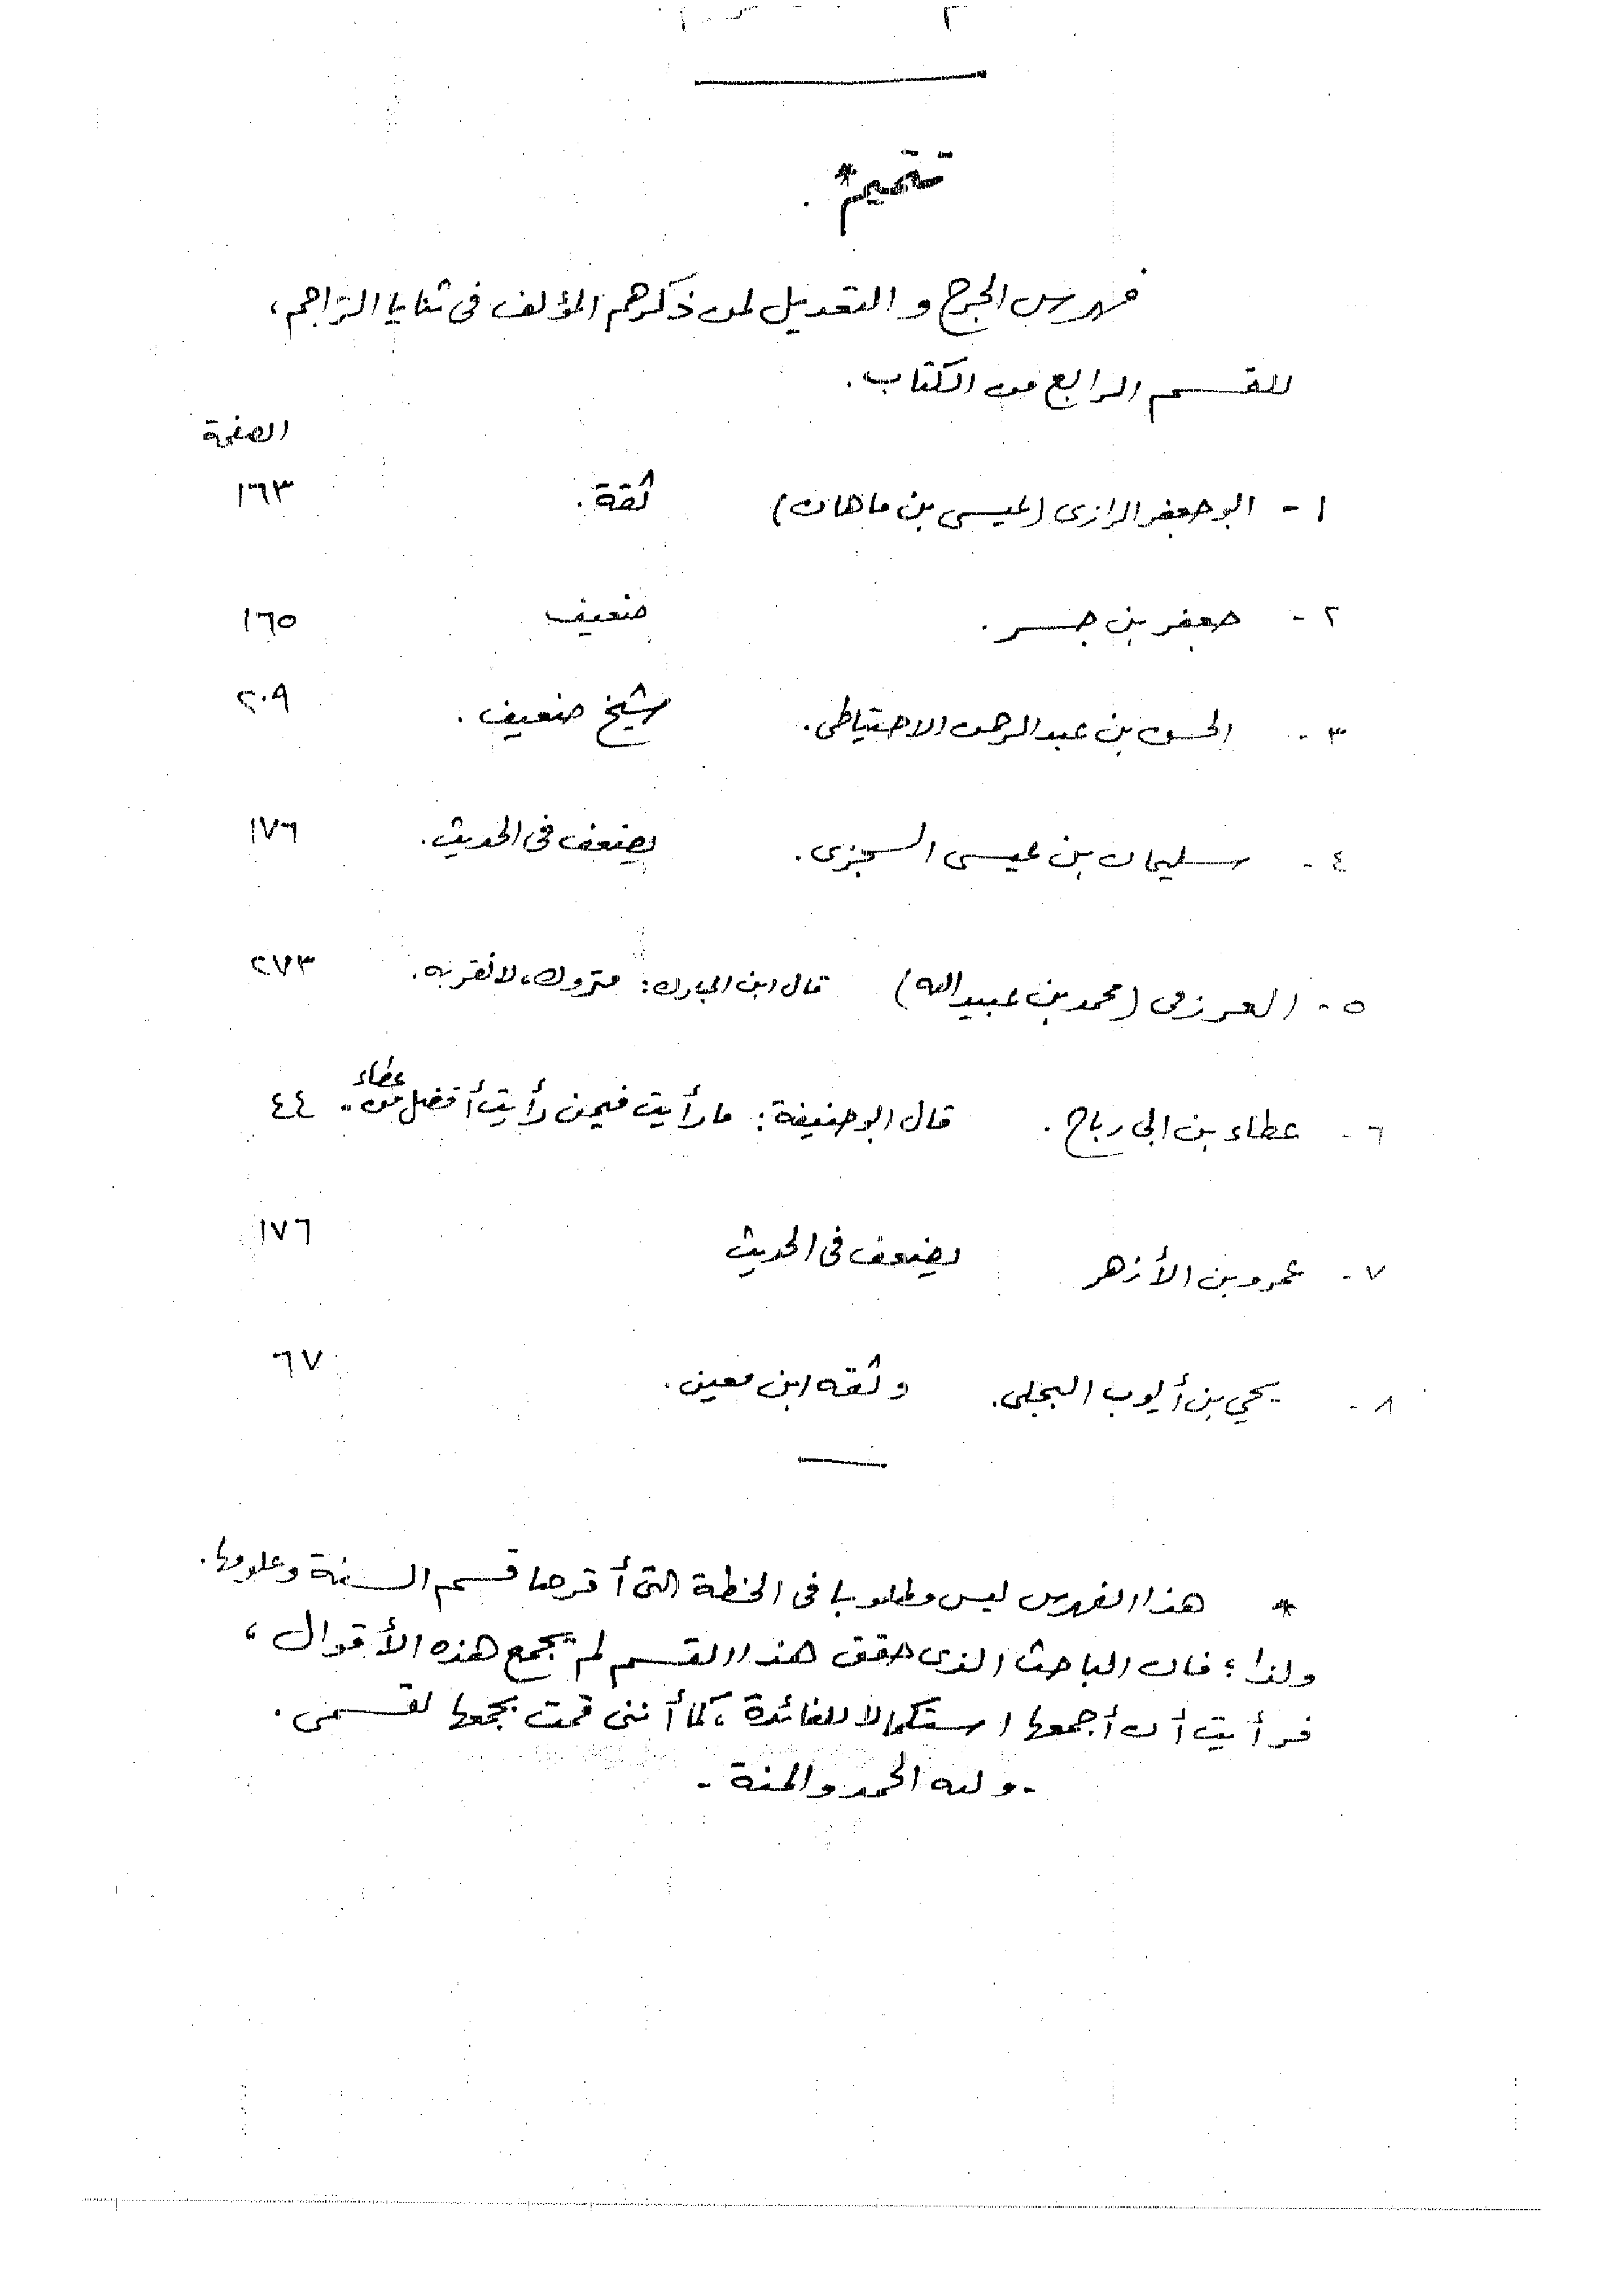 تتميم* .
فهرس الجرح و التعديل لمن ذكرهم المؤلف فى ثنايا التراجم،
للقسم الرابع من الكتاب .
الصفحة
١ - ابو جعفر الرازى (عيسى بن ماهان) ثقة . ١٦٣
٢ - جعفر بن جسر . ضعيف ١٦٥
٣ - الحسن بن عبد الرحمن الاحتياطى . شيخ ضعيف . ٢٠٩
٤ - سليمان بن عيسى السجزى . يضعف فى الحديث . ١٧٦
٥ - العرزمى (محمد بن عبيد الله) قال ابن المبارك : متروك ، لا نقربه . ٢٧٣
٦ - عطاء بن ابى رباح . قال ابو حنيفة : ما رأيت فيمن رأيت أفضل من عطاء .. ٤٤
٧ - عمرو بن الأزهر يضعف فى الحديث ١٧٦
٨ - يحي بن أيوب البجلى . وثقه ابن معين . ٦٧
* هذا الفهرس ليس مطلوبا فى الخطة التى أقرها قسم السنة وعلومها .
ولذا ؛ فان الباحث الذى حقق هذا القسم لم يجمع هذه الأقوال ،
فرأيت أن أجمعها استكمالا للفائدة ، كما أننى قمت بجمعها لقسمى .
- ولله الحمد والمنة -